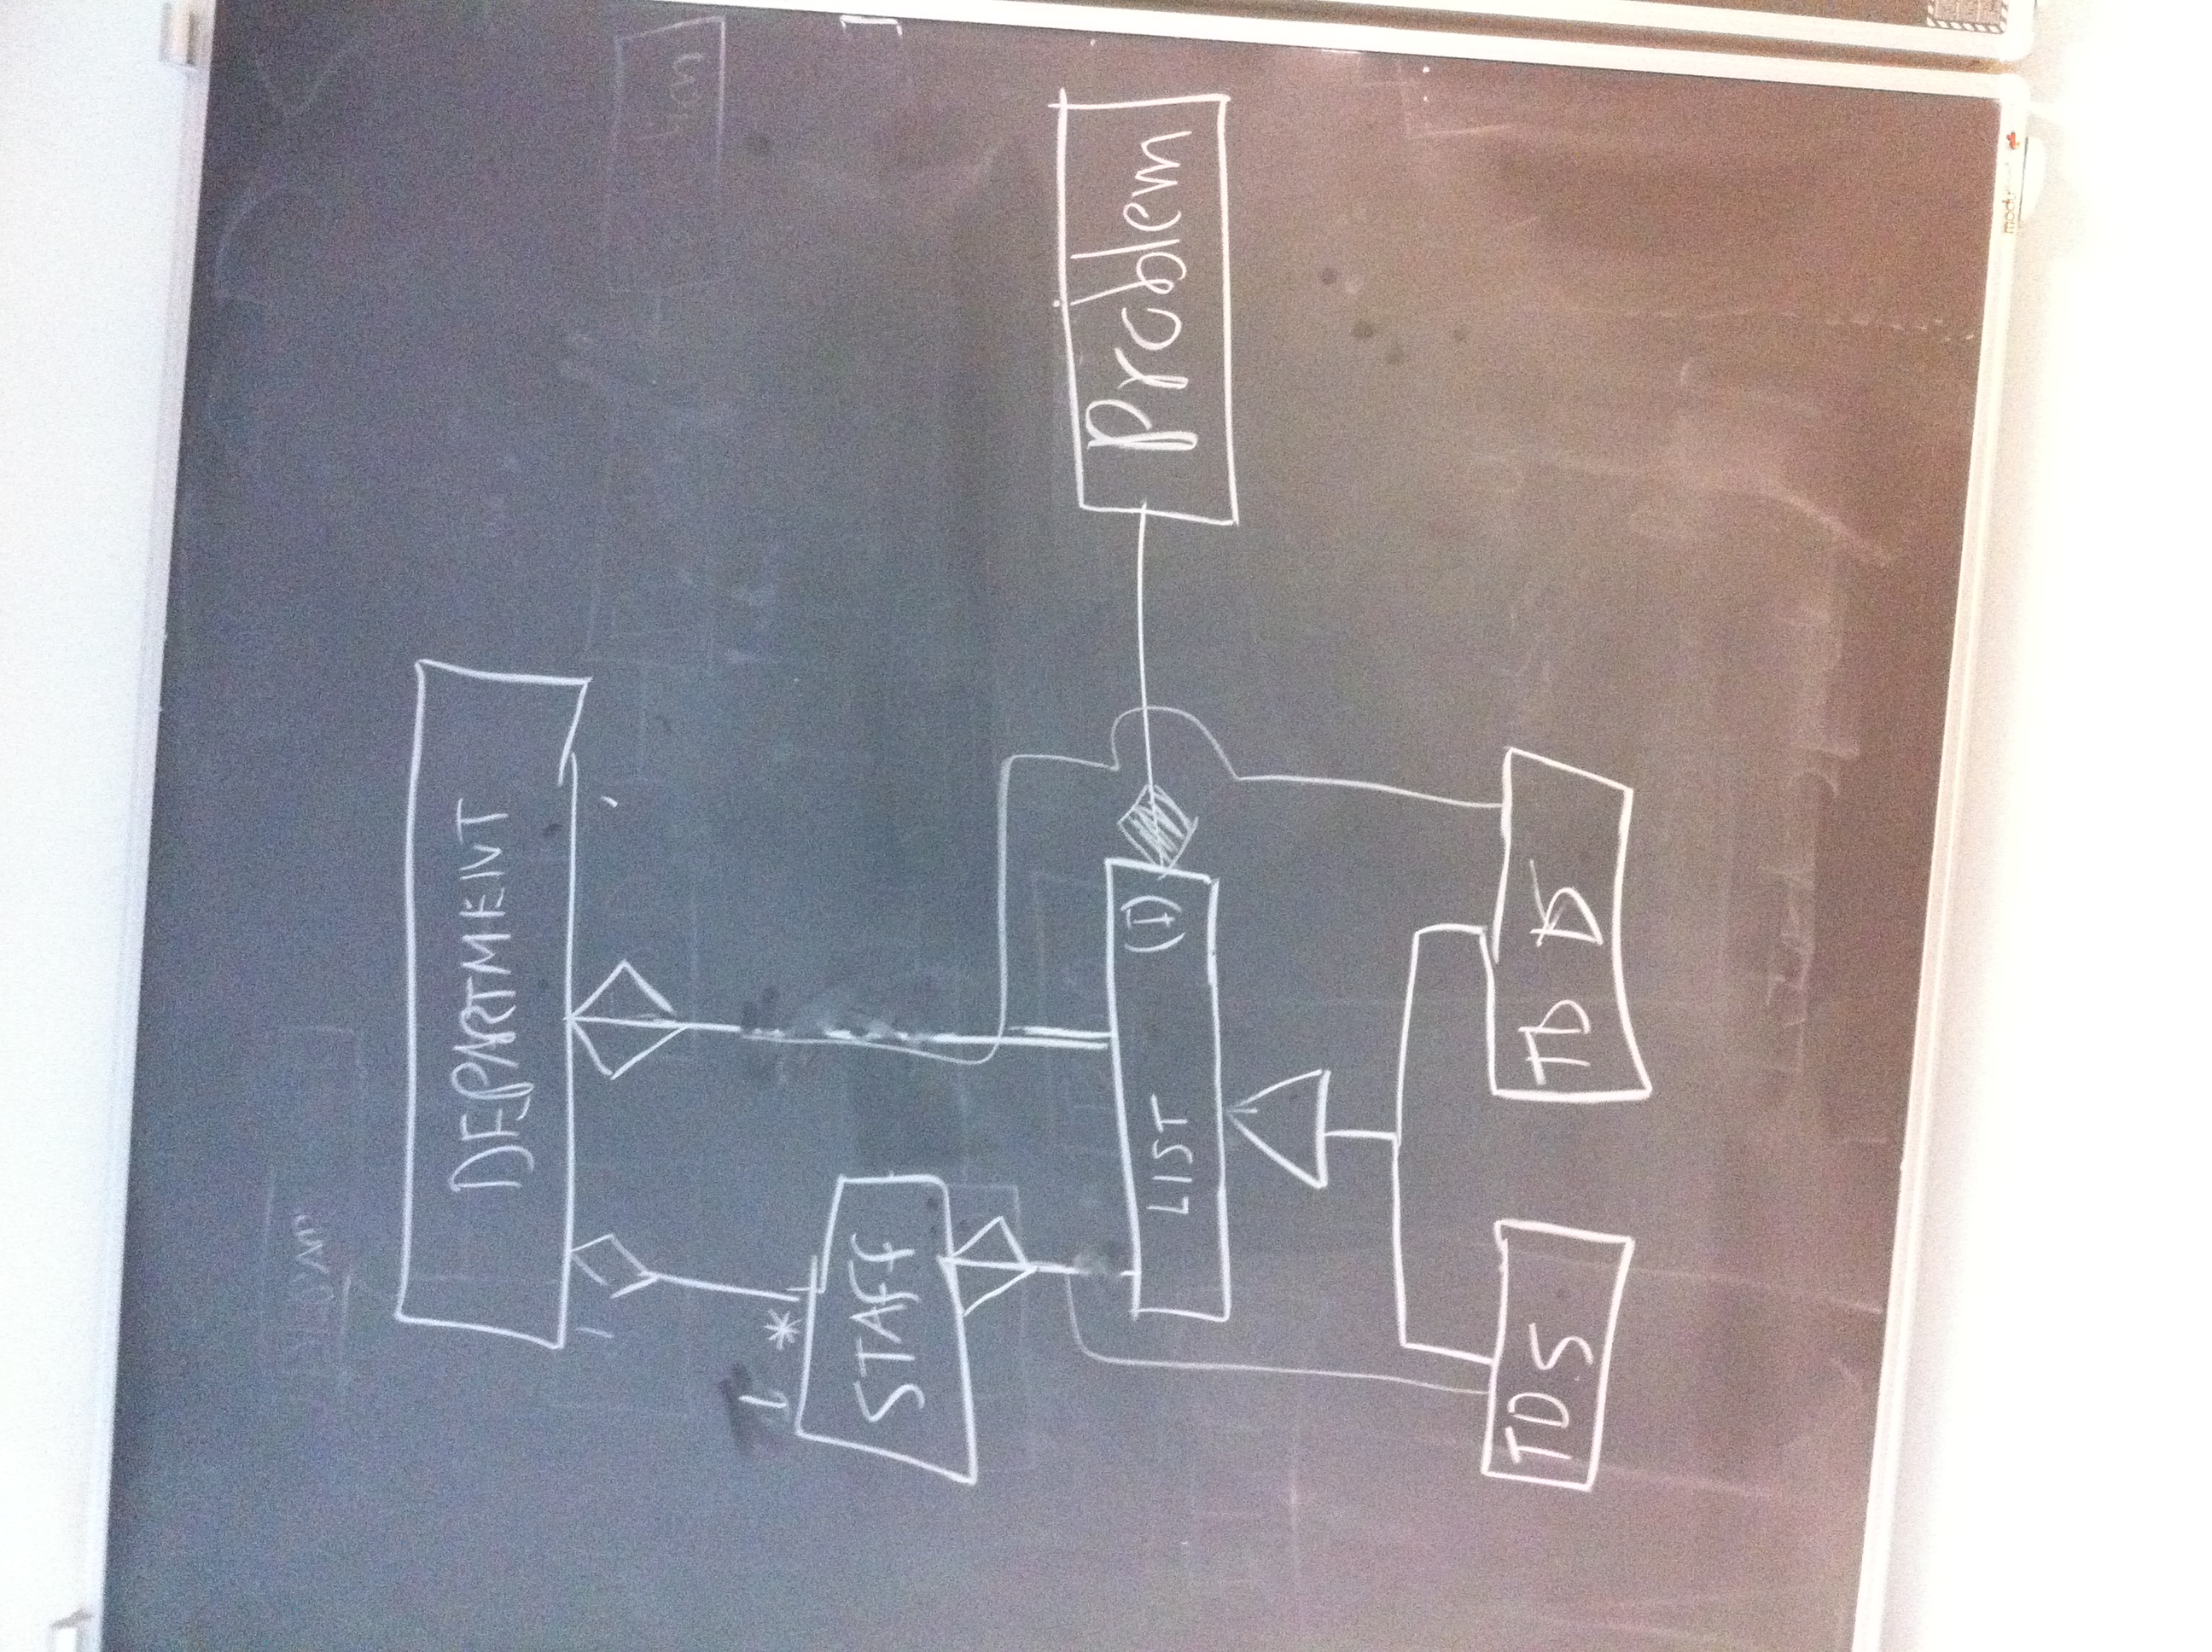 DEPARTMENT
1 *
STAFF
LIST (I)
Problem
TDS
TD